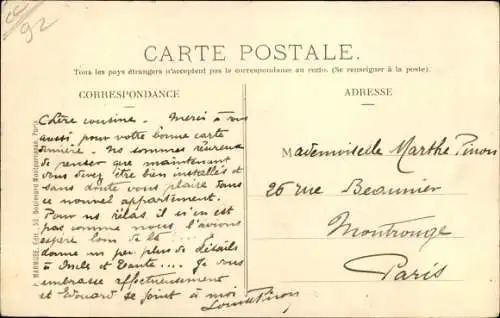 92
CARTE POSTALE.
Tous les pays étrangers n'acceptent pas la correspondance au recto. (Se renseigner à la poste).
CORRESPONDANCE
ADRESSE
Chère cousine. Merci à vous
aussi pour votre bonne carte
dernière. Ns sommes heureux
de penser que maintenant
vous devez être bien installés et
sans doute vous plaire dans
ce nouvel appartement.
Pour ns hélas il n'en est
pas comme nous l'avions
espéré
donne un peu plus de détails
à Mels et Tante.... Je vous
embrasse affectueusement
et Edouard se joint à moi
Pinon
Mademoiselle Marthe Pinon
26 rue Beaunier
Montrouge
Paris
MARMUSE, Édit., 50, Boulevard Montparnasse, Paris